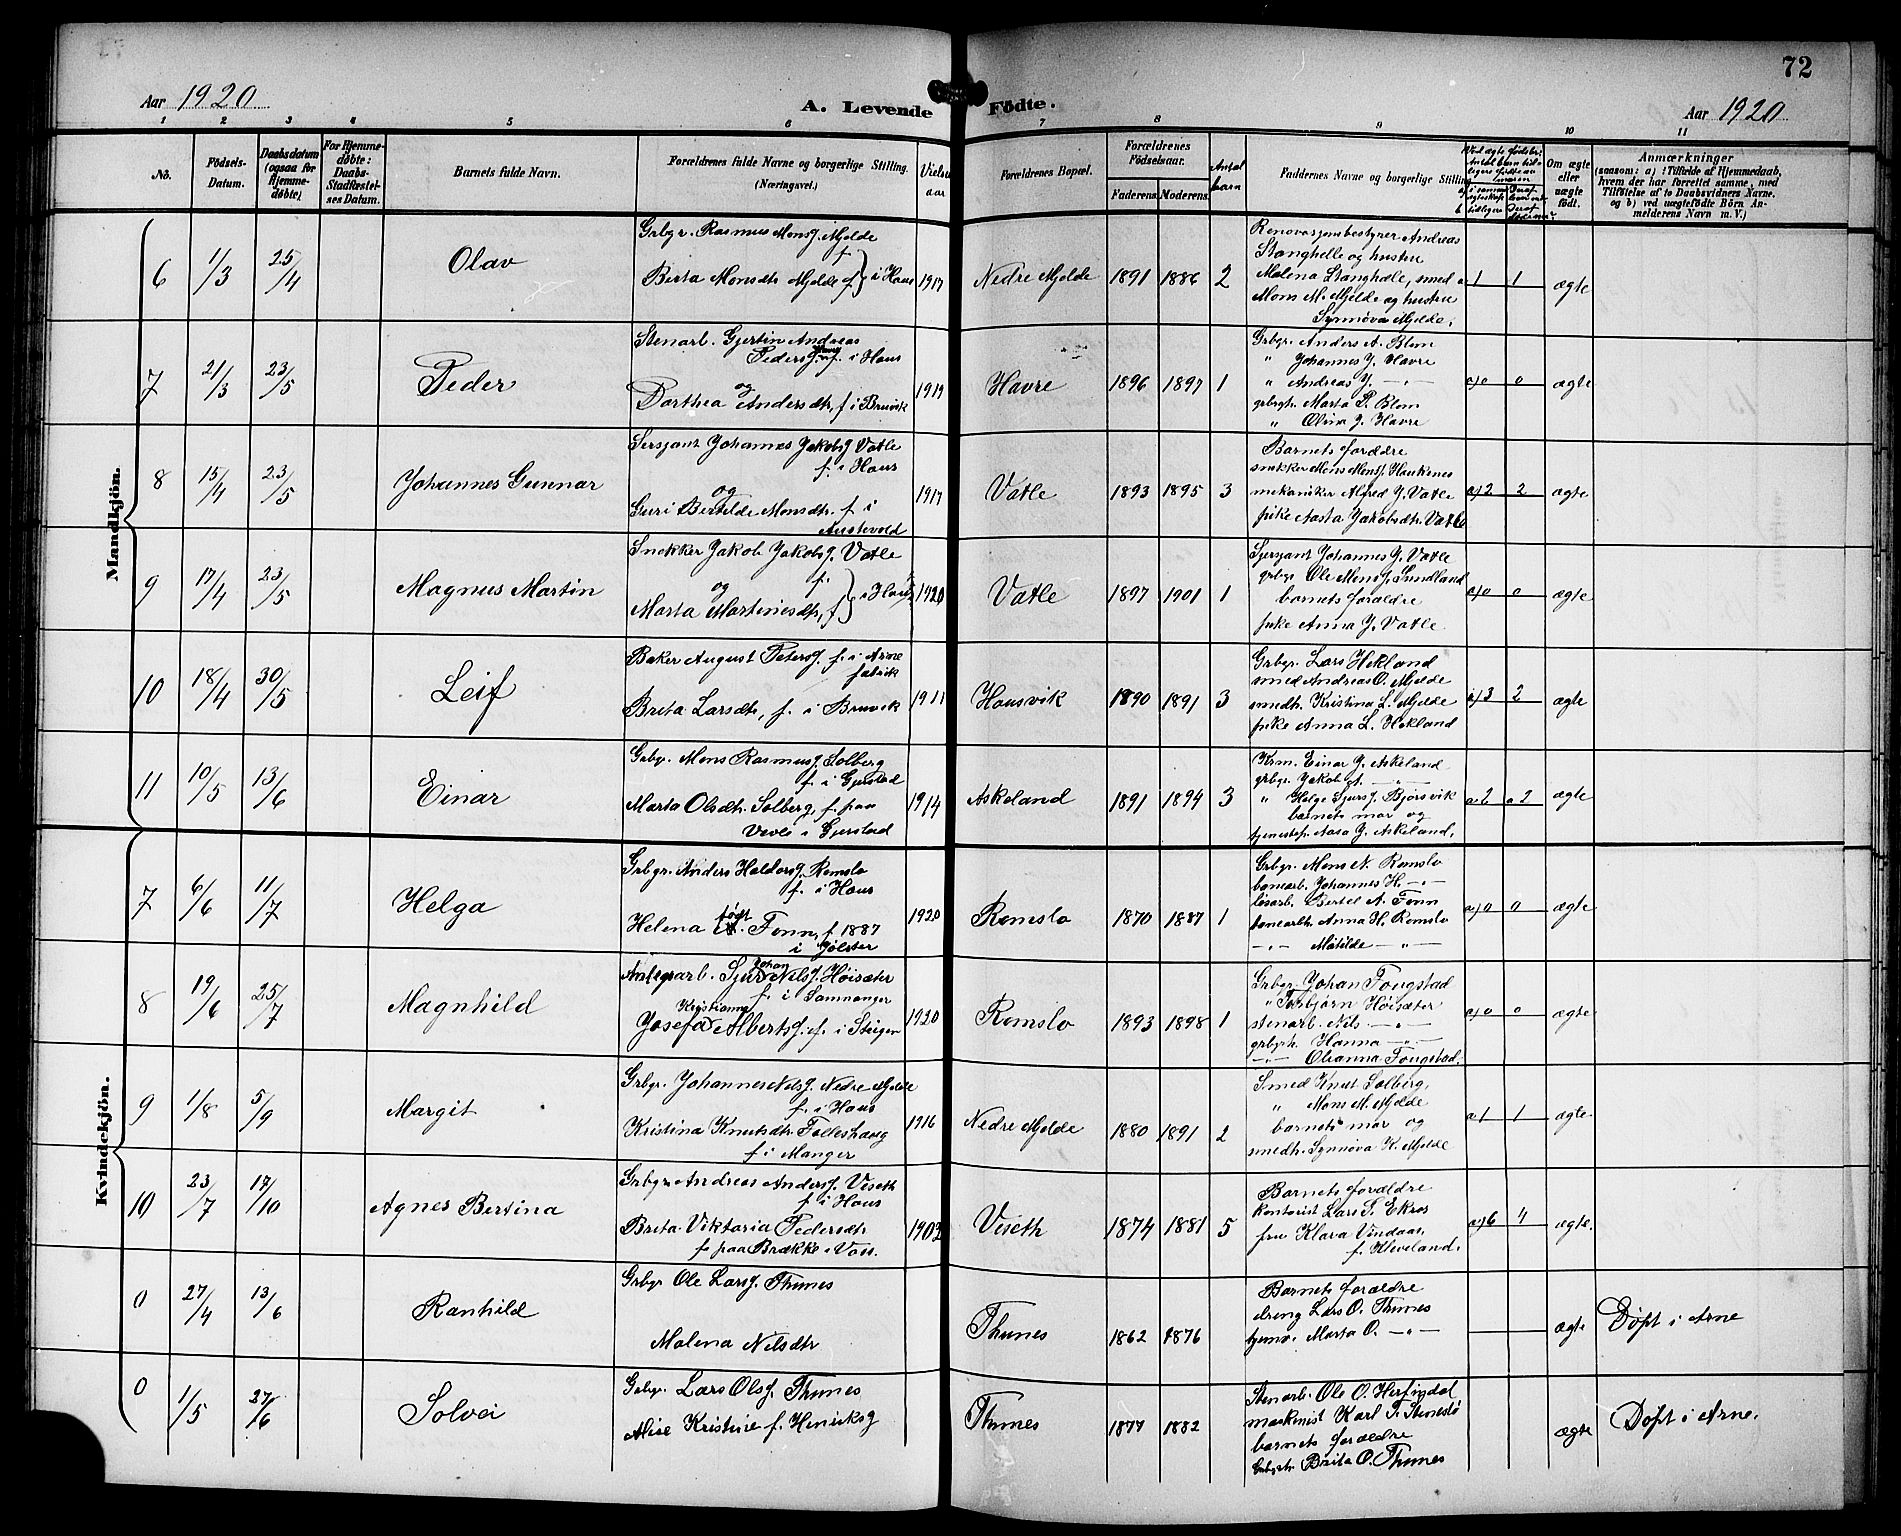 72
Aar 1920
A. Levende Födte.
Aar 1920
1 2 3 4 5 6 7 8 9 10 11
No.
Födsels-
Datum.
Daabsdatum
(ogsaa for
Hjemme-
døbte)
For Hjemme-
døbte:
Daabs-
Stadfæstel-
ses Datum.
Barnets fulde Navn.
Forældrenes fulde Navne og borgerlige Stilling.
(Næringsvei.)
Vielses
aar
Forældrenes Bopæl.
Forældrenes
Födselsaar.
Faderens. Moderens.
Antal
barn
Faddernes Navne og borgerlige Stilling
Om ægte
eller
uægte
født.
Anmærkninger
(saasom: a) i Tilfælde af Hjemmedaab,
hvem der har forrettet samme, med
Tilföielse af to Daabsvidners Navne.
og b) ved uægtefödte Börn An-
melderens Navn m. V.)
Mandkjön.
6 1/3 25/4 Olav
Grbgr. Rasmus Monsf. Mjelde
f.
Berta Monsdtr Mjelde f. } i Haus
1917 Nedre Mjelde 1891 1886 2
Renovasjonsbestyrer Andreas
Stanghelle og hustru
Malena Stanghelle, smed
Mons M. Mjelde og hustru
Synnöva Mjelde.
1 1 ægte
7 21/3 23/5 Peder
Stenarb. Gjertin Andreas
Pedersf. Havre f. i Haus
og
Dorthea Andersdtr, f. i Bruvik
1919 Havre 1896 1897 1
Grbgr. Anders A. Blom
" Johannes J. Havre
" Andreas J. -"-
grbrgtr. Marta P. Blom
" Olina J. Havre
a) 0 0 ægte
8 15/4 23/5 Johannes Gunnar
Sersjant Johannes Jakobsf Vatle
f. i Haus
og
Guri Bertilde Monsdtr. f. i
Austevold
1917 Vatle 1893 1895 3
Barnets forældre
snekker Mons Monsf. Haukenes
mekaniker Alfred J. Vatle
pike Aasta Jakobsdtr. Vatle
a) 2 2 ægte
9 17/4 23/5 Magnus Martin
Snekker Jakob Jakobsf. Vatle
f.
og
Marta Martinesdtr, f. } i Haus
1920 Vatle 1897 1901 1
Sersjant Johannes J. Vatle
grbgr. Ole Monsf. Sundland
barnets forældre
pike Anna J. Vatle
a) 0 0 ægte
10 18/4 30/5 Leif
Baker August Petersf. f. i Arne
fabrik
Brita Larsdtr, f. i Bruvik
1911 Hausvik 1890 1891 3
Grbgr. Lars Hekland
smed Andreas O. Mjelde
smedh. Kristina L. Mjelde
pike Anna L. Hekland
a) 3 2 ægte
11 10/5 13/6 Einar
Grbgr. Mons Rasmusf. Solberg
f. i Gjerstad
Marta Olsdtr. Solberg, f. paa
i Gjerstad
1914 Askeland 1891 1894 3
Krm. Einar J. Askeland
grbgr. Jakob A. -"-
" Helge Sjursf. Bjørsvik
barnets mor og
tjenestep. Aasa J. Askeland.
a 2 a 2 ægte
Kvindekjön.
7 6/6 11/7 Helga
Grbgr. Anders Haldorsf. Romslo
f. i Haus
Helena født Fonn, f. 1887
i Jølster
1920 Romslo 1870 1887 1
Grbgr. Mons N. Romslo
banearb. Johannes H. -"-
løsarb. Bertel A. Fonn
banearbh. Anna H. Romslo
-"- Matilde -"-
a) 0 0 ægte
8 19/6 25/7 Magnhild
Anlegsarb. Sjur Johan Nilsf. Höisæter
f. i Samnanger
Kristianna
Josefa Albertsf. f. i Steigen
1920 Romslo 1893 1898 1
Grbgr. Johan Tougstad
" Torbjørn Höisæter
stenarb. Nils -"-
grbgrh. Hanna -"-
-"- Olianna Tougstad.
a) 0 0 ægte
9 1/8 5/9 Margit
Grbgr. Johannes Nilsf. Nedre Mjelde
f. i Haus
Kristina Knutsdtr. Tolleshaug
f. i Manger
1916 Nedre Mjelde 1880 1891 2
Smed Knut Solberg,
" Mons M. Mjelde
barnets mor og
smedh. Synnöva K. Mjelde
a) 1 1 ægte
10 23/7 17/10 Agnes Bertina
Grbgr Andreas Andersf. Viseth
f. i Haus
Brita Viktoria Pedersdtr
f. paa Brække i Voss.
1902 Viseth 1874 1881 5
Barnets forældre
kontorist Lars T. Ekros
fru Klara Vindaas,
f. Kleveland.
a) 6 4 ægte.
0 27/4 13/6 Ranhild
Grbgr Ole Larsf. Thunes
Malena Nilsdtr
Thunes 1862 1876
Barnets forældre
dreng Lars O. Thunes
Marta O. -"-
ægte Döpt i Arne
0 1/5 27/6 Solvei
Grbgr. Lars Olsf. Thunes
Alise Kristine f. Henriksf
Thunes 1877 1882
Stenarb. Ole O. Herfindal
maskinist Karl T. Stenestø
barnets forældre
Grbgrtr. Brita O. Thunes
ægte Döpt i Arne.